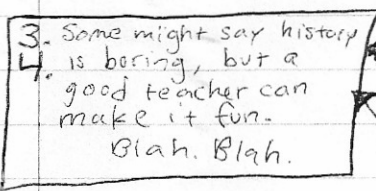 3. Some might say history
4. is boring, but a
good teacher can
make it fun.
Blah. Blah.